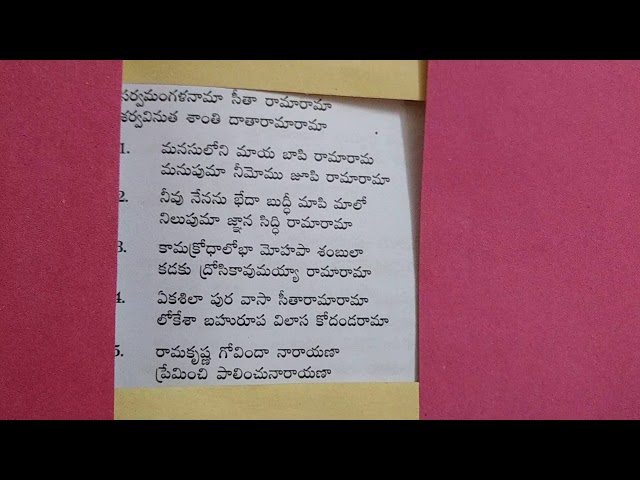 సర్వమంగళనామా సీతా రామారామా
శర్వవినుత శాంతి దాతారామారామా
1. మనసులోని మాయ బాపి రామారామ
మనుపుమా నీమోము జూపి రామారామా
2. నీవు నేనను భేదా బుద్ధీ మాపి మాలో
నిలుపుమా జ్ఞాన సిద్ధి రామారామా
3. కామక్రోధాలోభా మోహపా శంబులా
కడకు ద్రోసికావుమయ్యా రామారామా
4. ఏకశిలా పుర వాసా సీతారామారామా
లోకేశా బహురూప విలాస కోదండరామా
5. రామకృష్ణ గోవిందా నారాయణా
ప్రేమించి పాలించునారాయణా